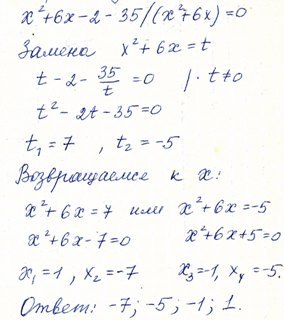 x²+6x-2-35/(x²+6x)=0
Замена x²+6x=t
t-2-35/t=0 |· t≠0
t²-2t-35=0
t₁=7, t₂=-5
Возвращаемся к x:
x²+6x=7 или x²+6x=-5
x²+6x-7=0 x²+6x+5=0
x₁=1, x₂=-7 x₃=-1, x₄=-5.
Ответ: -7; -5; -1; 1.